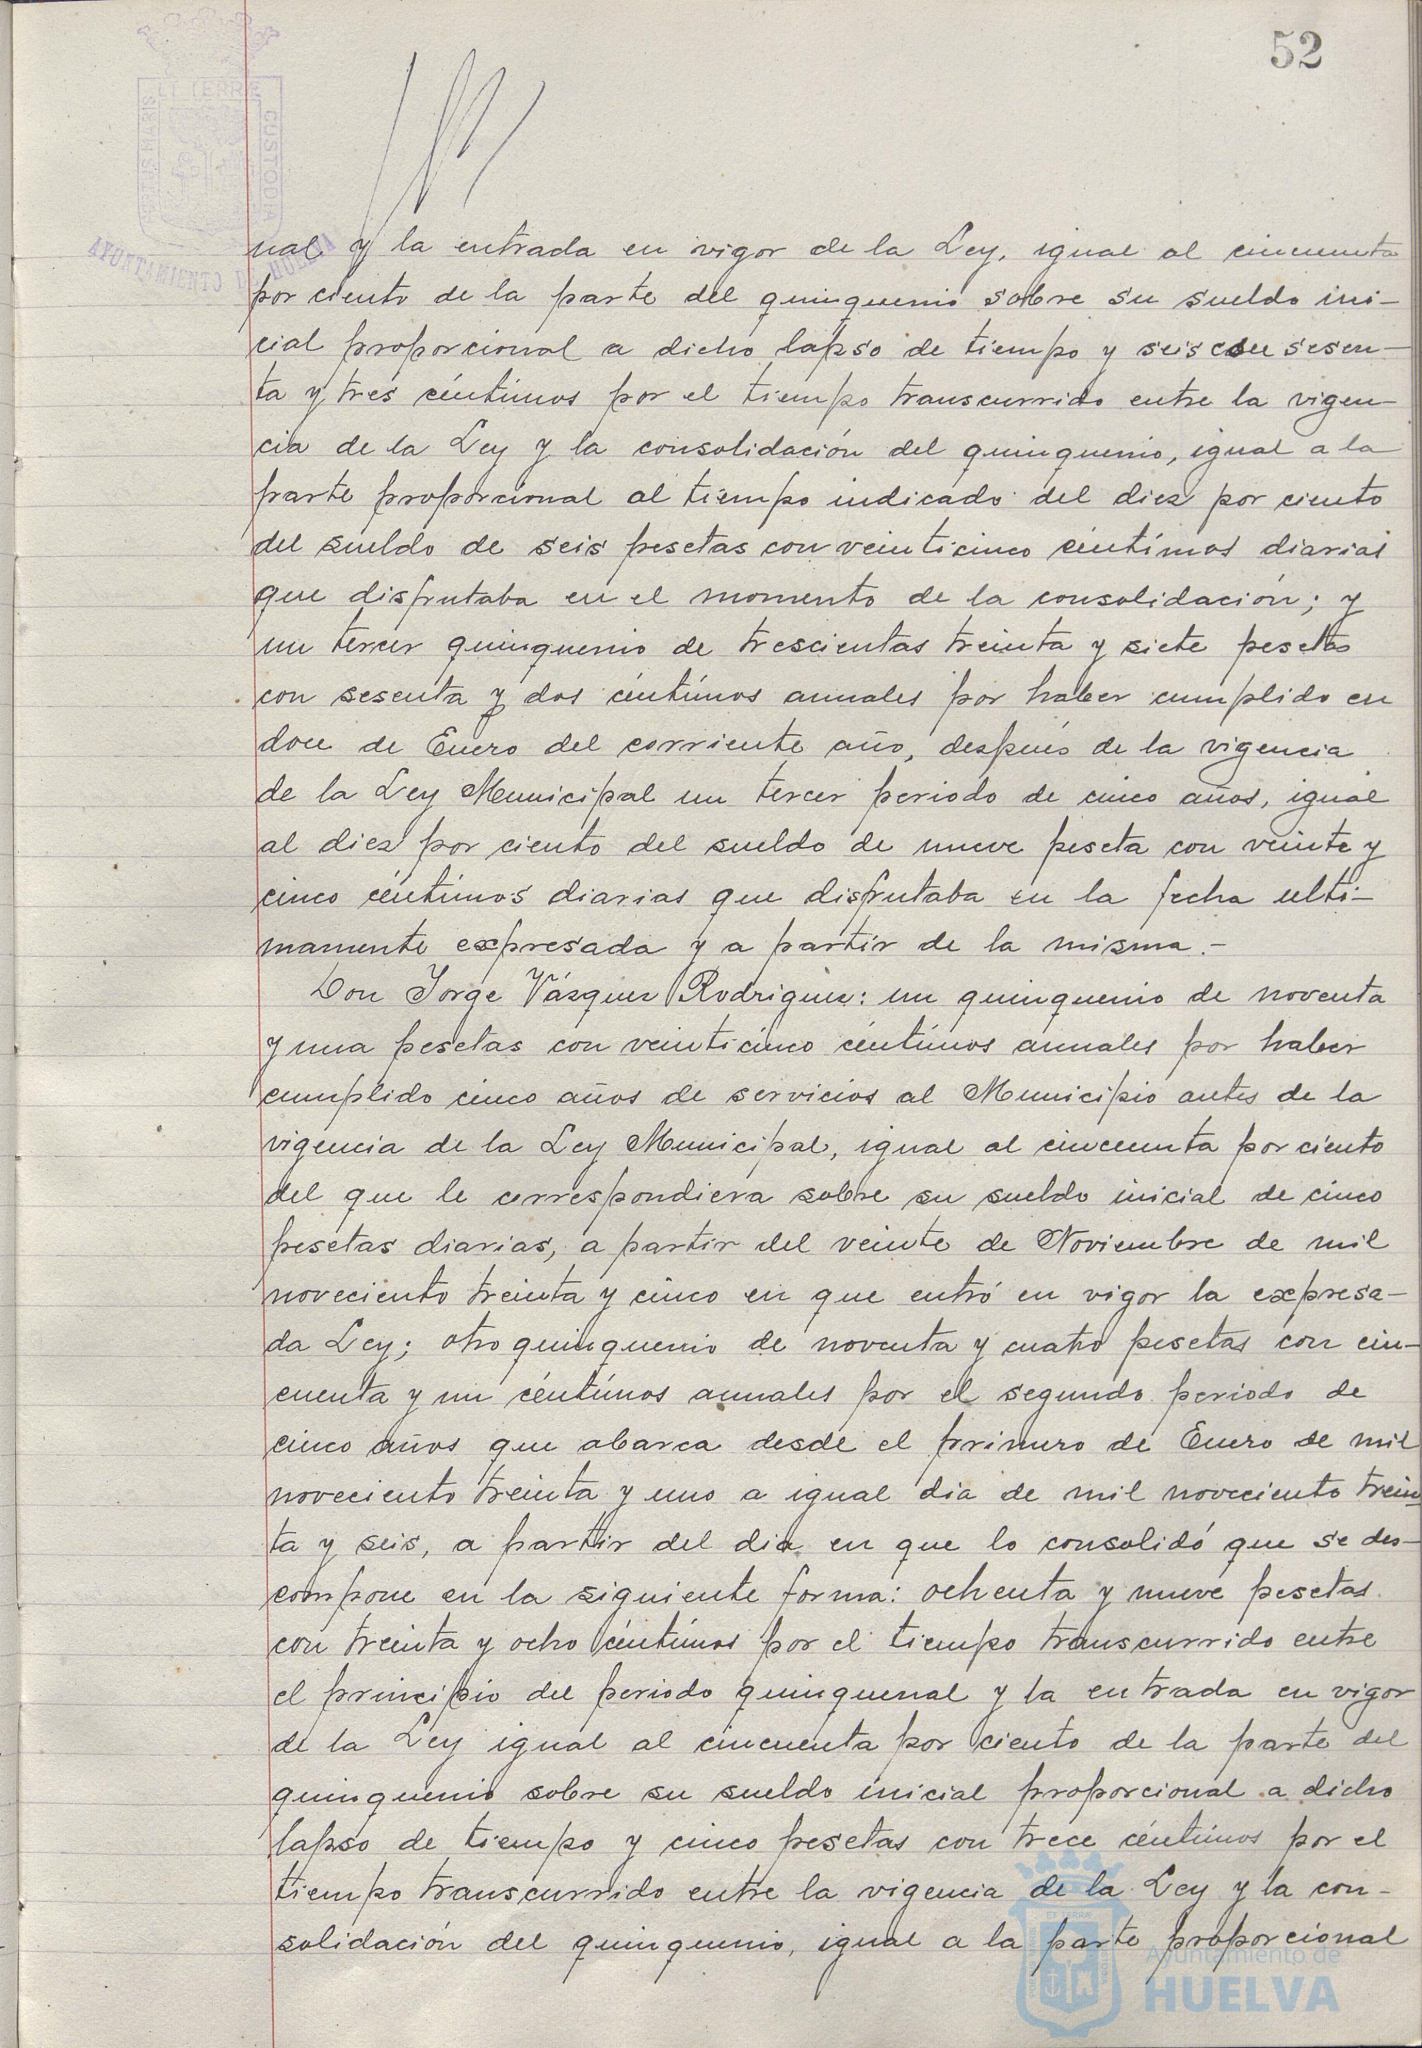 52
PORTUS MARIS
ET TERRÆ
CUSTODIA
AYUNTAMIENTO DE HUELVA
nal y la entrada en vigor de la Ley, igual al cincuenta
por ciento de la parte del quinquenio sobre su sueldo ini-
cial proporcional a dicho lapso de tiempo y seis con sesen-
ta y tres céntimos por el tiempo transcurrido entre la vigen-
cia de la Ley y la consolidación del quinquenio, igual a la
parte proporcional al tiempo indicado del diez por ciento
del sueldo de seis pesetas con veinticinco céntimos diarias
que disfrutaba en el momento de la consolidación; y
un tercer quinquenio de trescientas treinta y siete pesetas
con sesenta y dos céntimos anuales por haber cumplido en
doce de Enero del corriente año, después de la vigencia
de la Ley Municipal un tercer periodo de cinco años, igual
al diez por ciento del sueldo de nueve peseta con veinte y
cinco céntimos diarias que disfrutaba en la fecha ulti-
mamente expresada y a partir de la misma.-
Don Jorge Vázquez Rodriguez: un quinquenio de noventa
y una pesetas con veinticinco céntimos anuales por haber
cumplido cinco años de servicios al Municipio antes de la
vigencia de la Ley Municipal, igual al cincuenta por ciento
del que le correspondiera sobre su sueldo inicial de cinco
pesetas diarias, a partir del veinte de Noviembre de mil
noveciento treinta y cinco en que entró en vigor la expresa-
da Ley; otro quinquenio de noventa y cuatro pesetas con cin-
cuenta y un céntimos anuales por el segundo periodo de
cinco años que abarca desde el primero de Enero de mil
noveciento treinta y uno a igual dia de mil noveciento trein
ta y seis, a partir del dia en que lo consolidó que se des-
compone en la siguiente forma: ochenta y nueve pesetas
con treinta y ocho céntimos por el tiempo transcurrido entre
el principio del periodo quinquenal y la entrada en vigor
de la Ley igual al cincuenta por ciento de la parte del
quinquenio sobre su sueldo inicial proporcional a dicho
lapso de tiempo y cinco pesetas con trece céntimos por el
tiempo transcurrido entre la vigencia de la Ley y la con-
solidación del quinquenio, igual a la parte proporcional
Ayuntamiento de
HUELVA